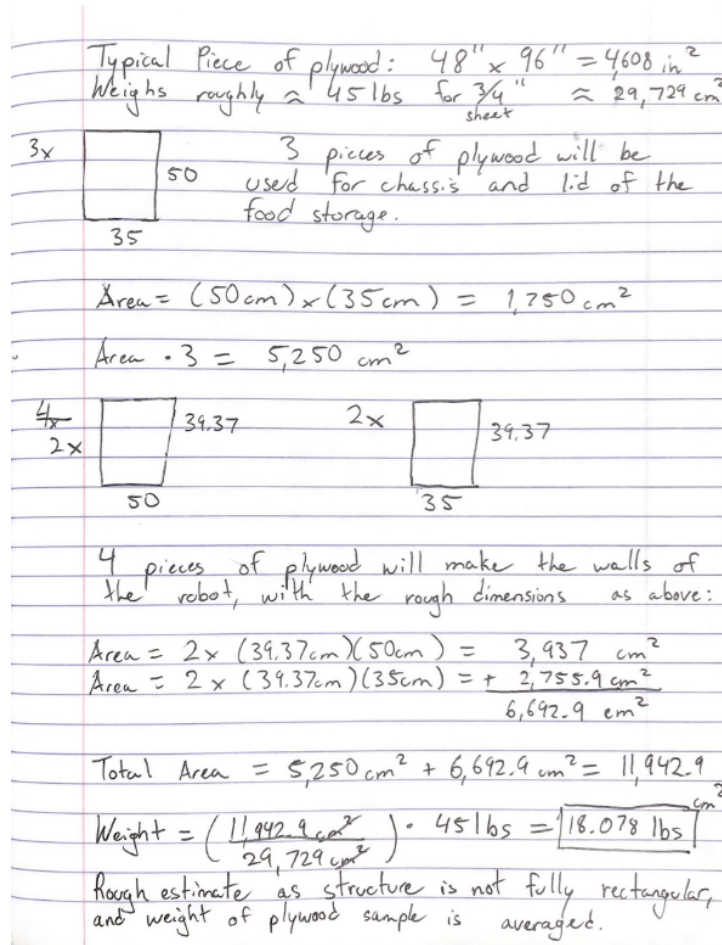 Typical Piece of plywood: 48" x 96" = 4,608 in²
Weighs roughly ≈ 45 lbs for 3/4" sheet ≈ 29,729 cm²
3x
50
35
3 pieces of plywood will be
used for chassis and lid of the
food storage.
Area = (50cm) x (35cm) = 1,750 cm²
Area · 3 = 5,250 cm²
4x
2x
39.37
50
2x
39.37
35
4 pieces of plywood will make the walls of
the robot, with the rough dimensions as above:
Area = 2x (39.37cm)(50cm) = 3,937 cm²
Area = 2x (39.37cm)(35cm) = + 2,755.9 cm²
6,692.9 cm²
Total Area = 5,250 cm² + 6,692.9 cm² = 11,942.9 cm²
Weight = (11,942.9 cm² / 29,729 cm²) · 45 lbs = 18.078 lbs
Rough estimate as structure is not fully rectangular,
and weight of plywood sample is averaged.